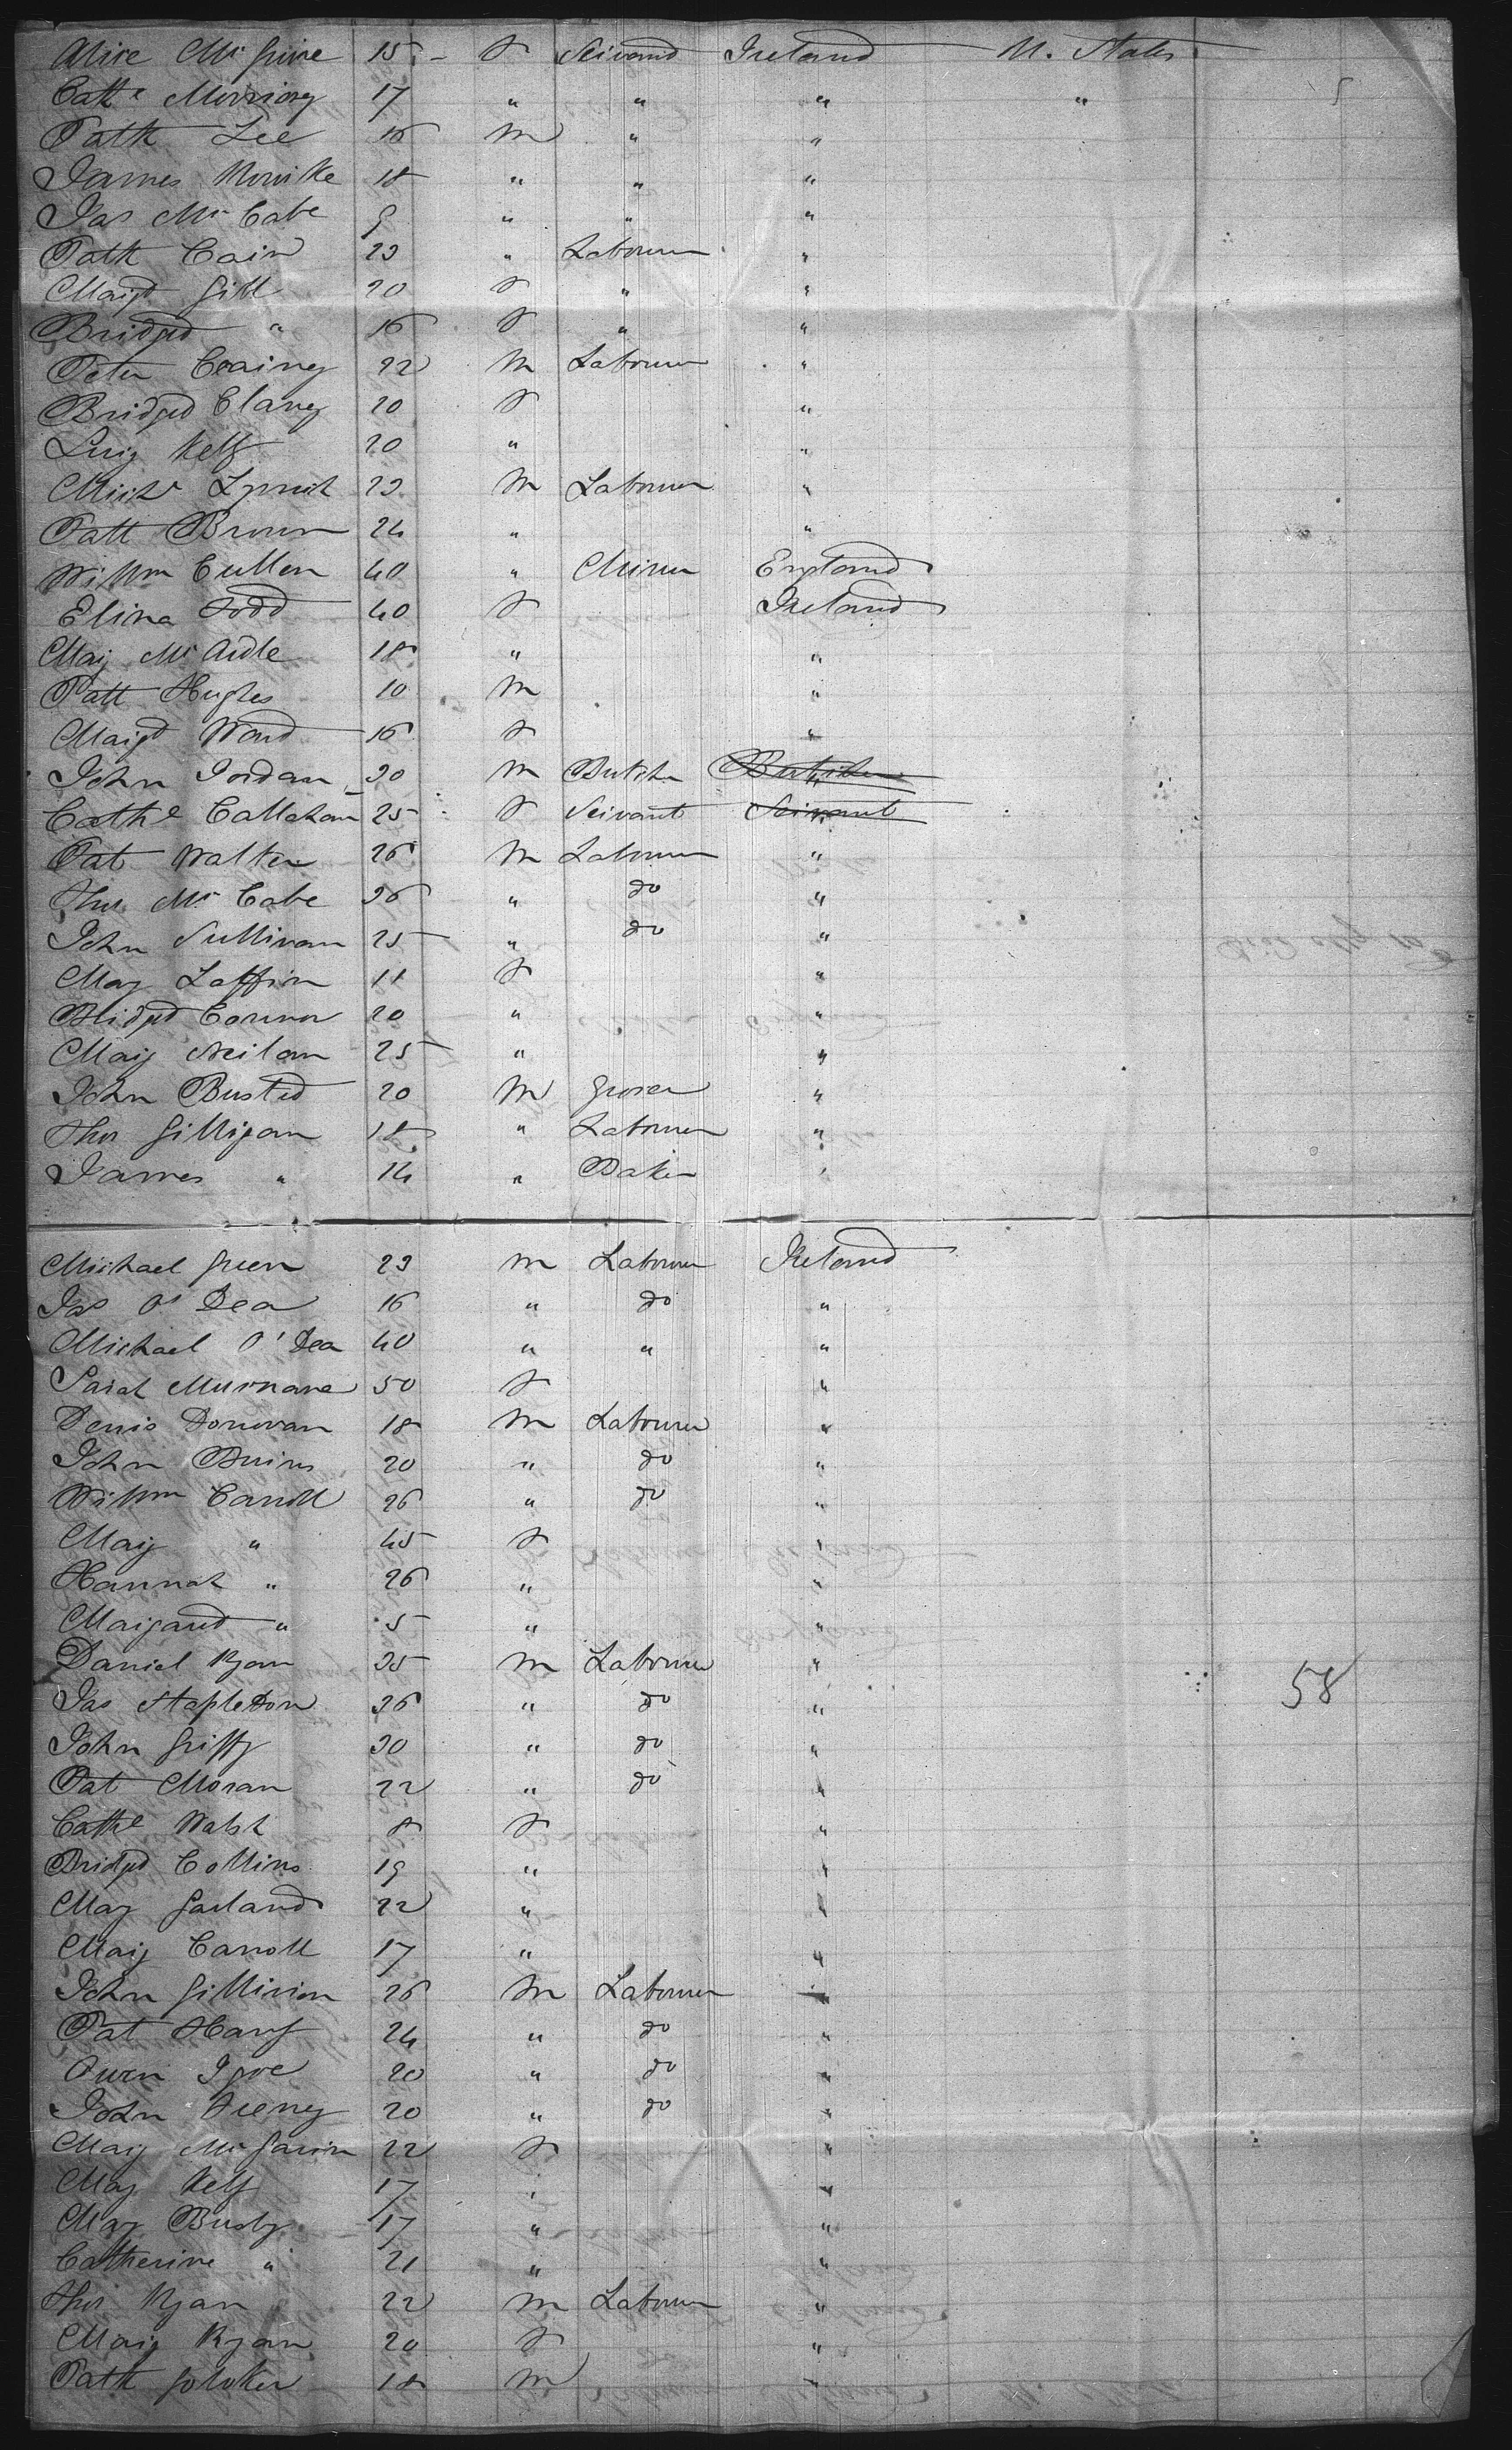 Alice McGuire 15 - F Servand Ireland U. States
Cathe Morrisey 17 " " " "
Patk Lee 16 M " "
James 18 " " "
Jas McCabe 9 " " "
Patk Cain 23 " Labourer "
Margt Gill 20 F " "
Bridged " 16 F " "
Peter 22 M Labourer "
Bridged Clancy 20 F "
Kelly 20 " "
Michl Lynch 23 M Labourer "
Patt Brown 24 " "
Willm Cullen 40 " Miner England
Elina Todd 40 F Ireland
Mary McArdle 18 " "
Patt Hughes 10 M "
Margt Ward 16 F "
John Jordan 30 M Butcher Butcher "
Cathe Callahan 25 F Servant Servant "
Pat Walter 26 M Labourer "
Thos McCabe 36 " do "
John Sullivan 25 " do "
Mary Laffin 11 F "
Bridged Connor 20 " "
Mary Neilan 25 " "
John Busted 20 M Grocer "
Thos Gilligan 18 " Labourer "
James " 14 " Baker "
Michael Green 23 M Labourer Ireland
Jas O'Dea 16 " do "
Michael O'Dea 40 " " "
Sarah Murnane 50 F "
Denis Donovan 18 M Labourer "
John 20 " do "
Willm Carroll 26 " do "
Mary " 45 F "
Hannah " 26 " "
Margared " 5 " "
Daniel Ryan 35 M Labourer "
Jas Stapleton 36 " do " 58
John Griffy 30 " do "
Pat Moran 22 " do "
Cathe Walsh 8 F "
Bridged Collins 19 " "
Mary Garland 22 " "
Mary Carroll 17 " "
John 26 M Labourer "
Pat 24 " do "
Owen Igoe 20 " do "
John Feeney 20 " do "
Mary 22 F "
Mary Kelly 17 " "
Mary Busby 17 " "
Catherine " 21 " "
Thos Ryan 22 M Labourer "
Mary Ryan 20 F "
Patk 18 M "